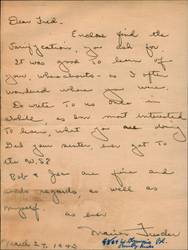 Dear Fred.
Enclose find the
verification, you ask for.
It was good to learn of
your whereabouts - as I often
wondered where you were.
Do write to us once in
awhile, as I am most interested
to know, what you are doing
Did your sister, ever get to
the U.S?
Bob & Jean are fine and
sends regards, as well as
myself
as ever
March 27, 1940